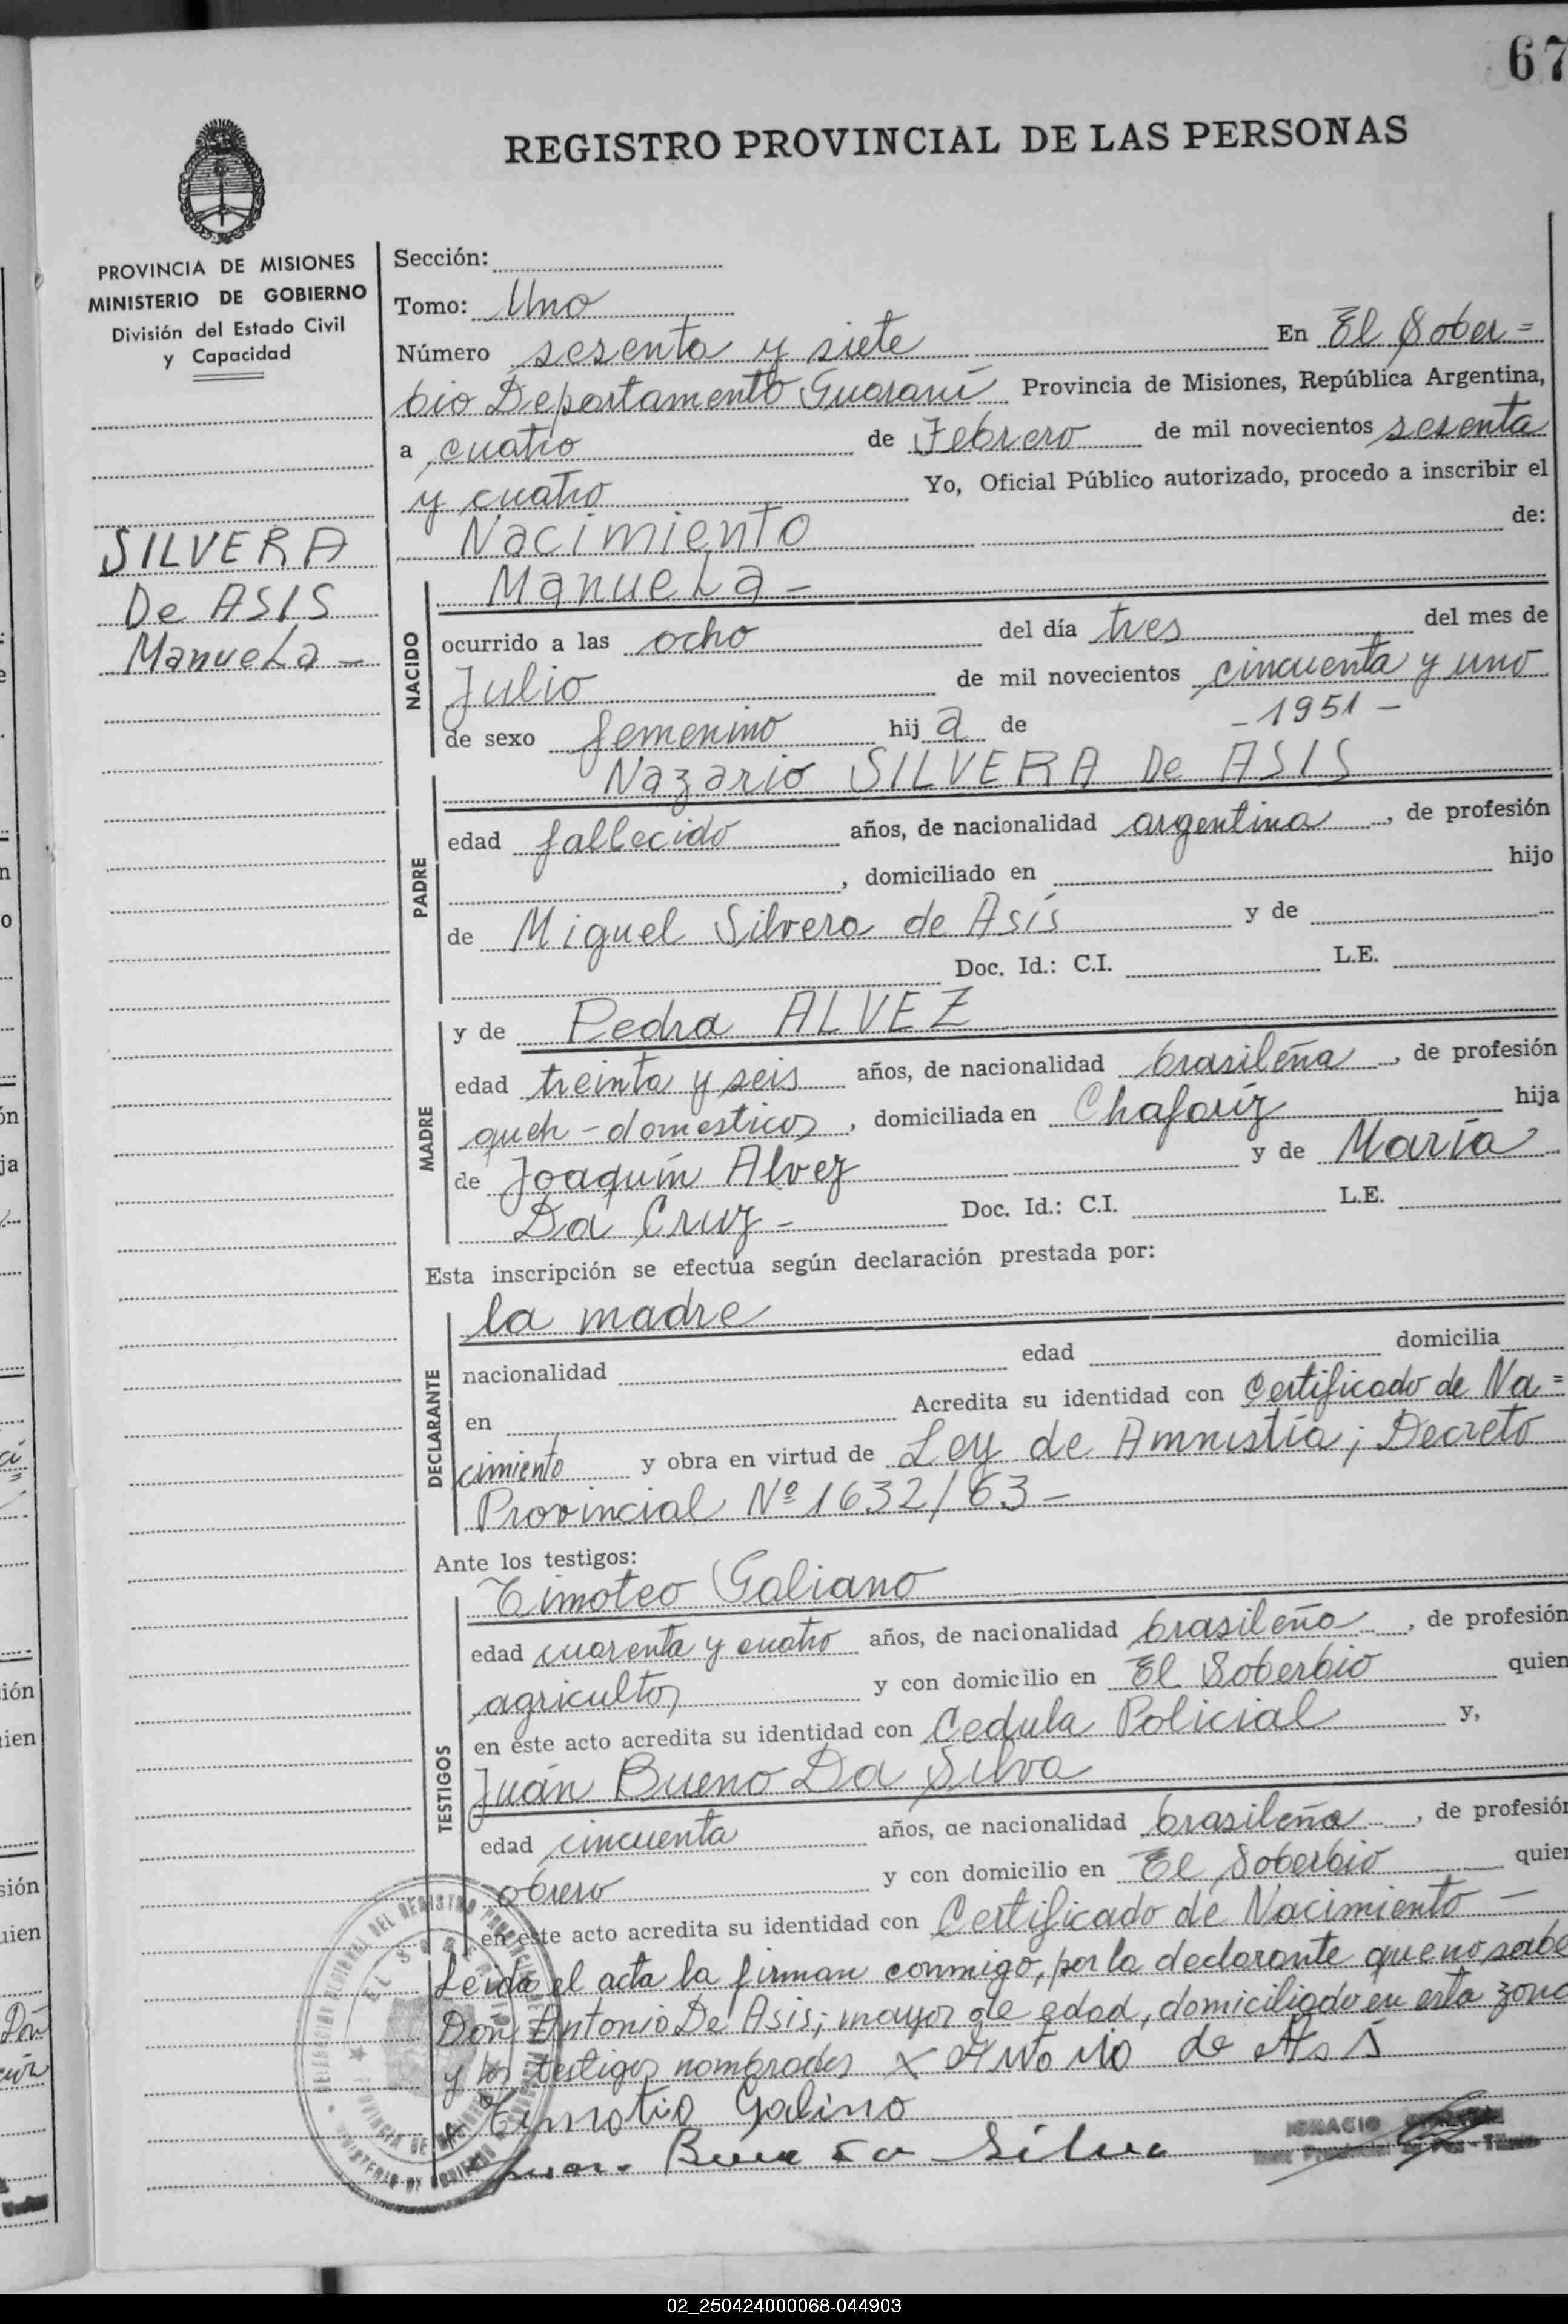 67
REGISTRO PROVINCIAL DE LAS PERSONAS
PROVINCIA DE MISIONES
MINISTERIO DE GOBIERNO
División del Estado Civil
y Capacidad
SILVERA
De ASIS
Manuela -
Sección:
Tomo: Uno
Número sesenta y siete En El Sober=
bio Departamento Guaraní Provincia de Misiones, República Argentina,
a cuatro de Febrero de mil novecientos sesenta
y cuatro Yo, Oficial Público autorizado, procedo a inscribir el
Nacimiento de:
NACIDO
Manuela -
ocurrido a las ocho del día tres del mes de
Julio de mil novecientos cincuenta y uno
- 1951 -
de sexo femenino hij a de
PADRE
Nazario SILVERA De ASIS
edad fallecido años, de nacionalidad argentina, de profesión
, domiciliado en hijo
de Miguel Silvera de Asís y de
Doc. Id.: C.I. L.E.
MADRE
y de Pedra ALVEZ
edad treinta y seis años, de nacionalidad brasileña, de profesión
queh - domesticos, domiciliada en Chafaríz hija
de Joaquín Alvez y de María
Da Cruz - Doc. Id.: C.I. L.E.
Esta inscripción se efectúa según declaración prestada por:
DECLARANTE
la madre
nacionalidad edad domicilia
en Acredita su identidad con Certificado de Na=
cimiento y obra en virtud de Ley de Amnistía; Decreto
Provincial Nº 1632/63 -
Ante los testigos:
TESTIGOS
Timoteo Galiano
edad cuarenta y cuatro años, de nacionalidad brasileña, de profesión
agricultor y con domicilio en El Soberbio quien
en este acto acredita su identidad con Cedula Policial y,
Juán Bueno Da Silva
edad cincuenta años, de nacionalidad brasileña, de profesión
obrero y con domicilio en El Soberbio quien
en este acto acredita su identidad con Certificado de Nacimiento -
Leida el acta la firman conmigo, por la declarante que no sabe
Don Antonio De Asis; mayor de edad, domiciliado en esta zona
y los testigos nombrados x Antonio de Asis
Timotio Galino
Juan Bueno da Silva
IGNACIO
EL SOBERBIO
02_250424000068-044903